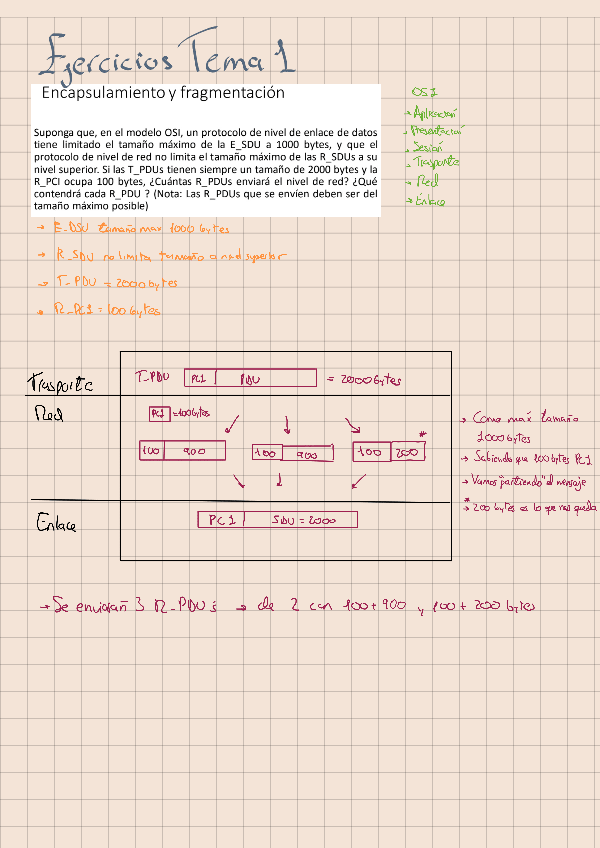 Ejercicios Tema 1
Encapsulamiento y fragmentación
Suponga que, en el modelo OSI, un protocolo de nivel de enlace de datos
tiene limitado el tamaño máximo de la E_SDU a 1000 bytes, y que el
protocolo de nivel de red no limita el tamaño máximo de las R_SDUs a su
nivel superior. Si las T_PDUs tienen siempre un tamaño de 2000 bytes y la
R_PCI ocupa 100 bytes, ¿Cuántas R_PDUs enviará el nivel de red? ¿Qué
contendrá cada R_PDU ? (Nota: Las R_PDUs que se envíen deben ser del
tamaño máximo posible)
OSI
→ Aplicación
→ Presentación
→ Sesión
→ Trasporte
→ Red
→ Enlace
→ E_DSU tamaño max 1000 bytes
→ R_SDU no limita tamaño a red superior
→ T_PDU = 2000 bytes
→ R_PCI = 100 bytes
Trasporte
T_PDU PCI PDU = 2000 bytes
Red
PCI = 100 bytes
100 900 100 900 100 200 *
→ Como max tamaño
1000 bytes
→ Sabiendo que 100 bytes PCI
→ Vamos "partiendo" el mensaje
* → 200 bytes es lo que nos queda
Enlace
PCI SDU = 2000
→ Se enviarán 3 R_PDU's → de 2 con 100 + 900 y 100 + 200 bytes